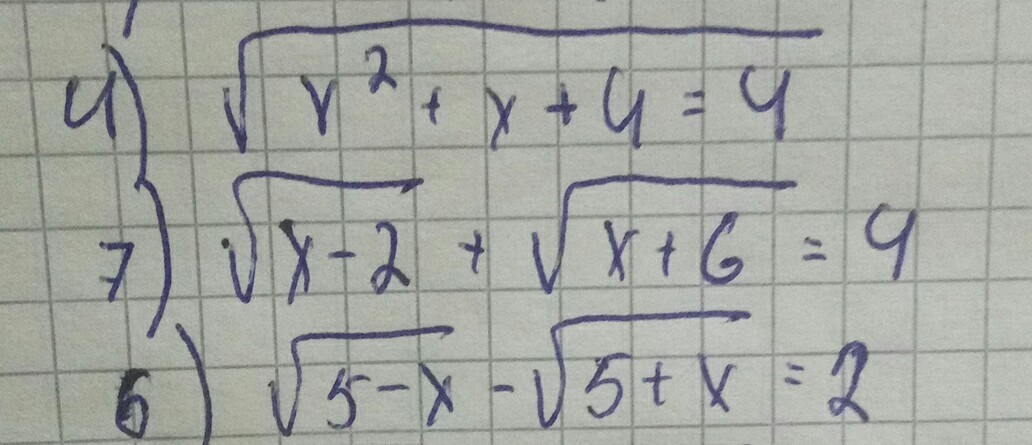 4) √(x² + x + 4 = 4)
7) √(x - 2) + √(x + 6) = 4
6) √(5 - x) - √(5 + x) = 2